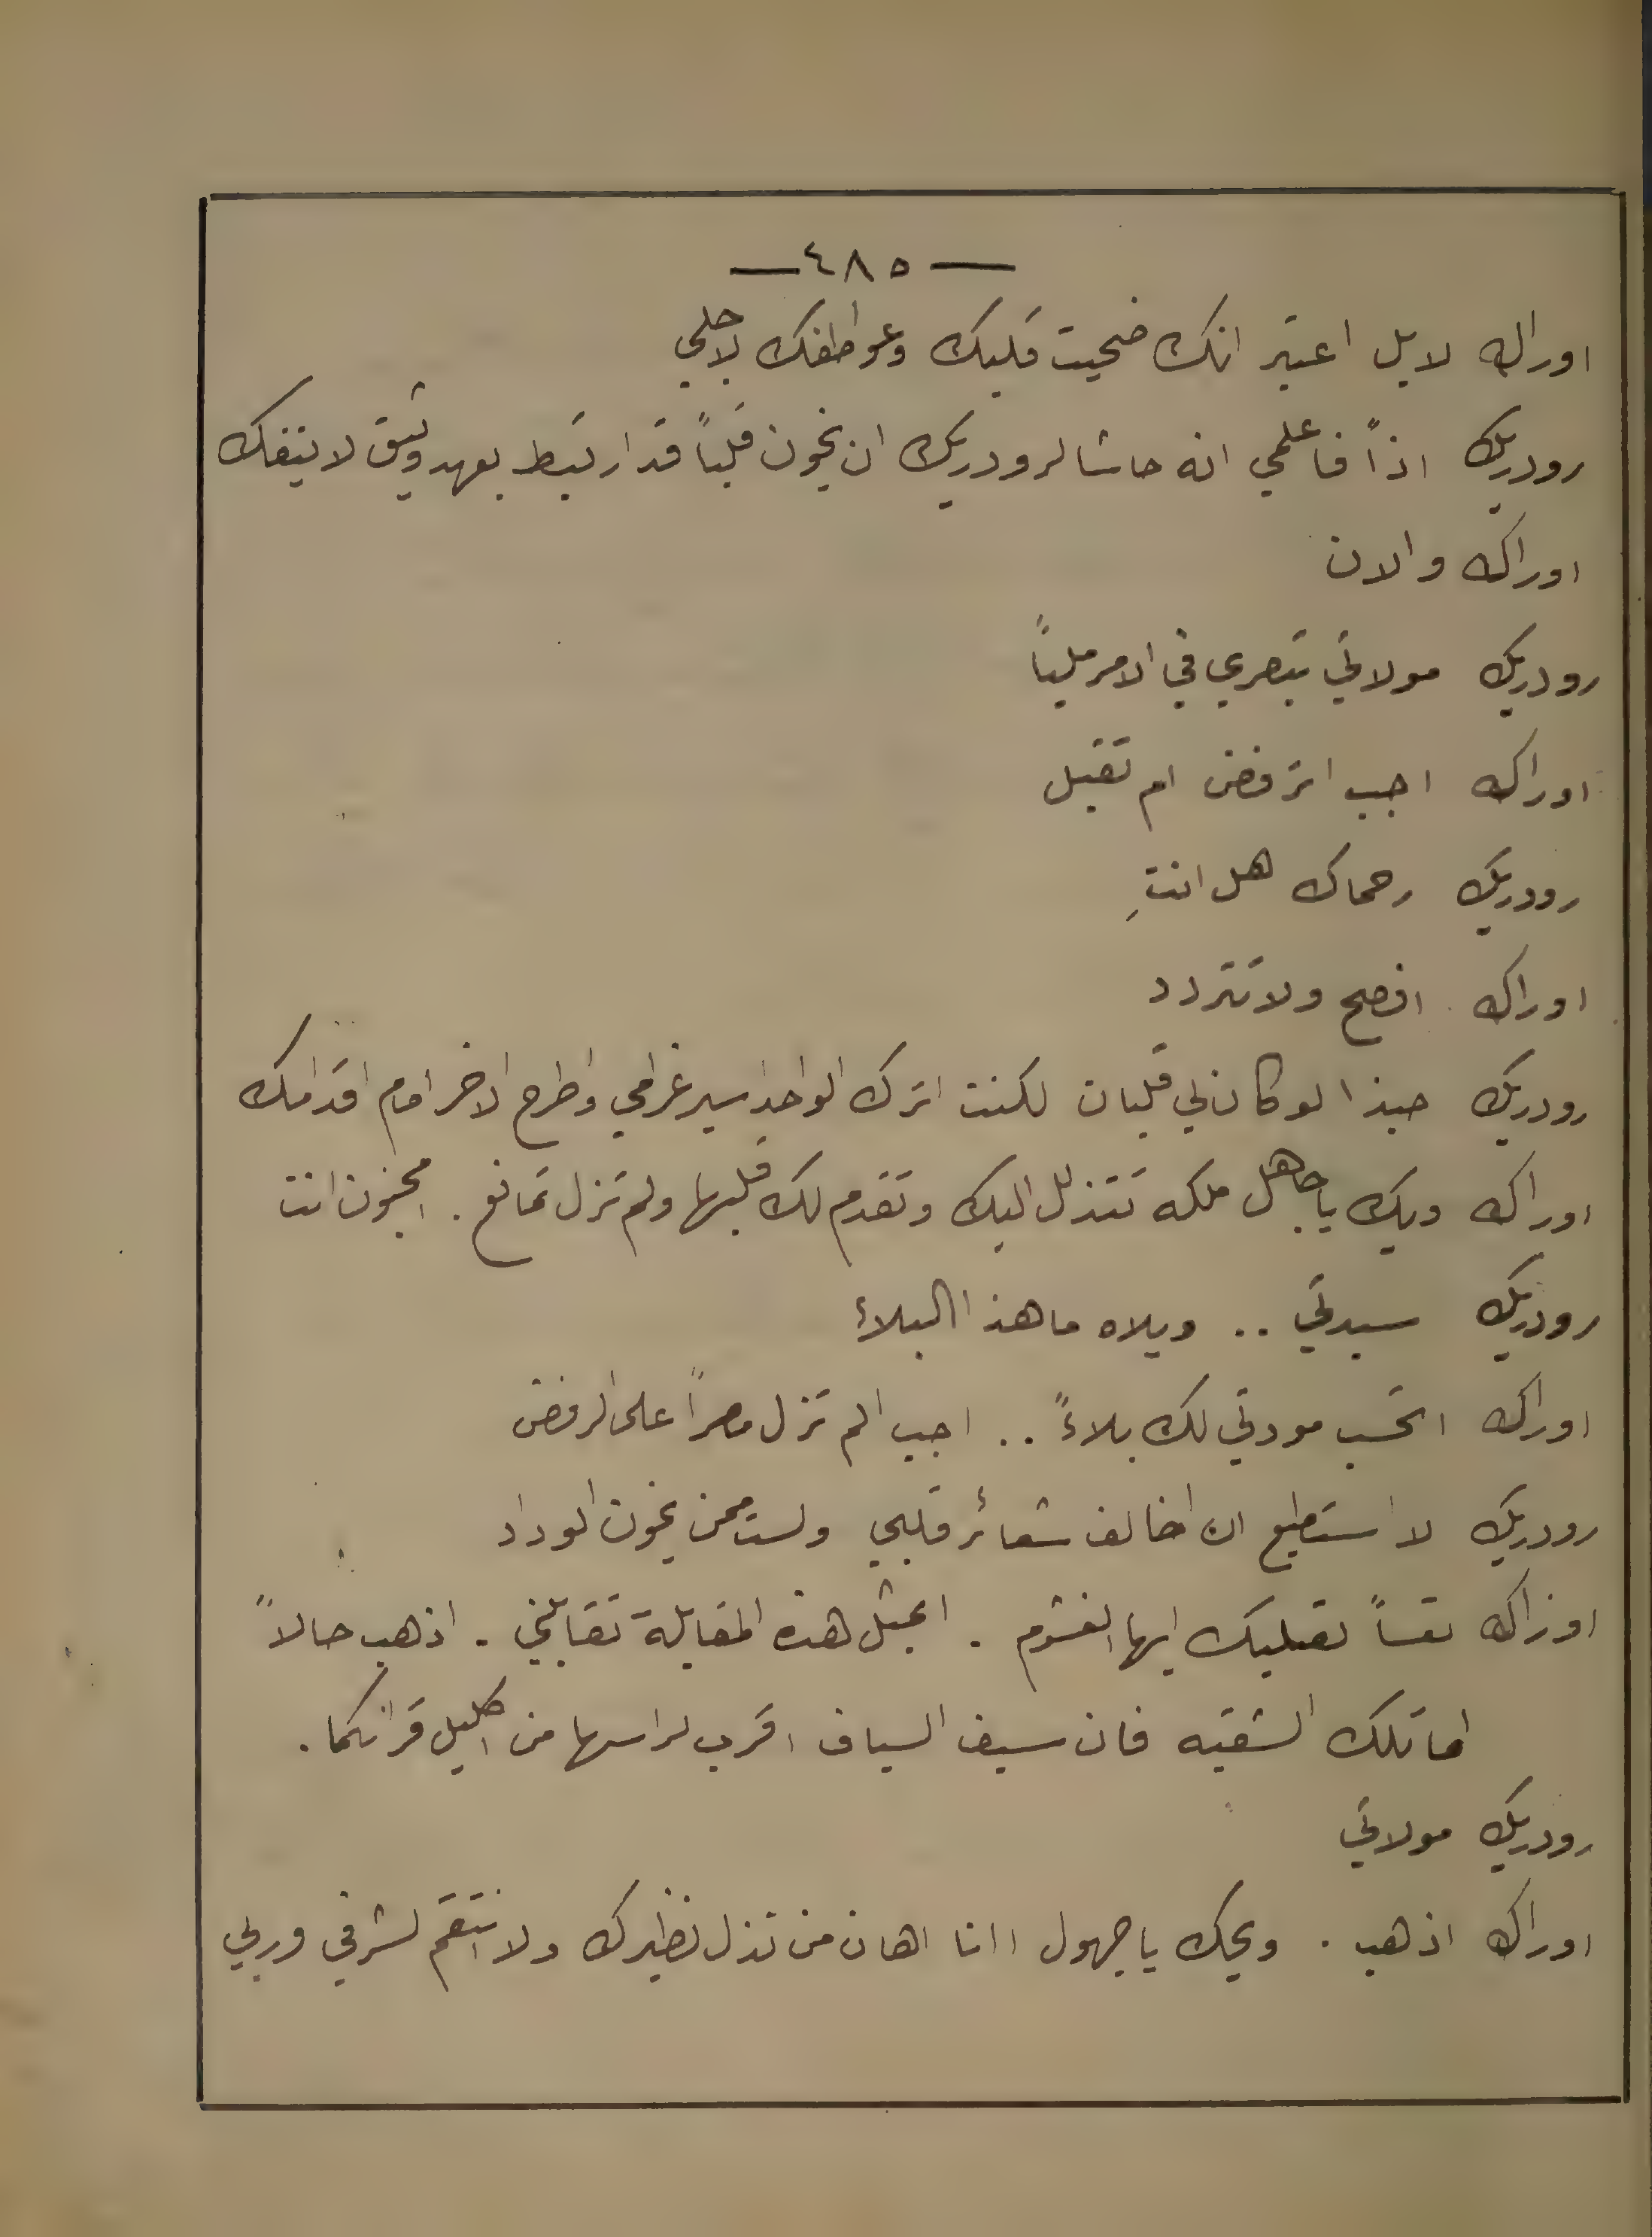 — ٤٨٥ —
اوراك لا بل اعتبر انك ضحيت قلبك وعواطفك لاجلي
رودريك اذاً فاعلمي انه حاشا لرودريك ان يخون قلباً قد ارتبط بعهد وثيق لا ينفك
اوراك والان
رودريك مولاتي تبصري في الامر ملياً
اوراك اجب اترفض ام تقبل
رودريك رحماك هل انتِ
اوراك افصح ولا تتردد
رودريك حبذا لو كان لي قلبان لكنت اترك الواحد اسير غرامي واطرح الاخر امام اقدامك
اوراك ويك يا جاهل ملكه تتذلل اليك وتقدم لك قلبها ولم تزل تمانع . امجنون انت
رودريك سيدتي .. ويلاه ما هذا البلاء
اوراك اتحسب مودتي لك بلاءً .. اجب الم تزل مصراً على الرفض
رودريك لا استطيع ان اخالف شعائر قلبي ولست ممن يخون الوداد
اوراك تعساً لقلبك ايها الغشوم . ابمثل هذه المقابلة تقابلني . اذهب حالاً
اما تلك الشقيه فان سيف السياف اقرب لراسها من اكليل قرانكما .
رودريك مولاتي
اوراك اذهب . ويحك يا جهول اانا اهان من نذل نظيرك ولا انتقم لشرفي وربي